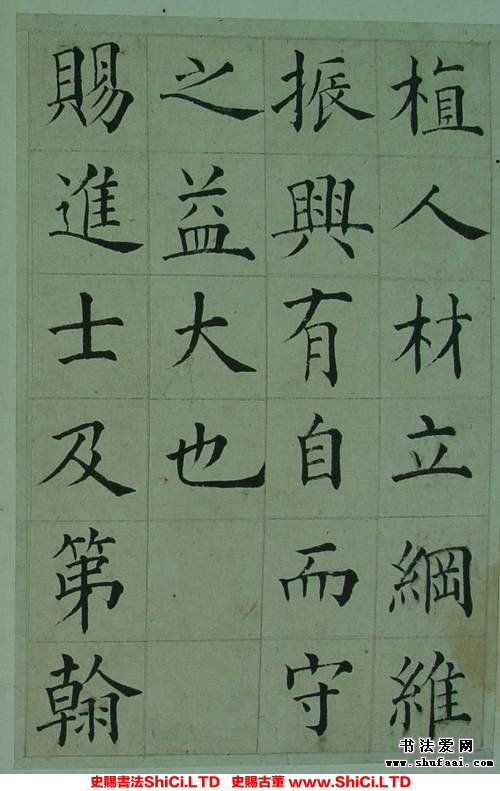 植人材立綱維
振興有自而守
之益大也
賜進士及第翰
书法爱网
www.shufaai.com
史賜書法ShiCi.LTD 史賜古董 www.ShiCi.LTD